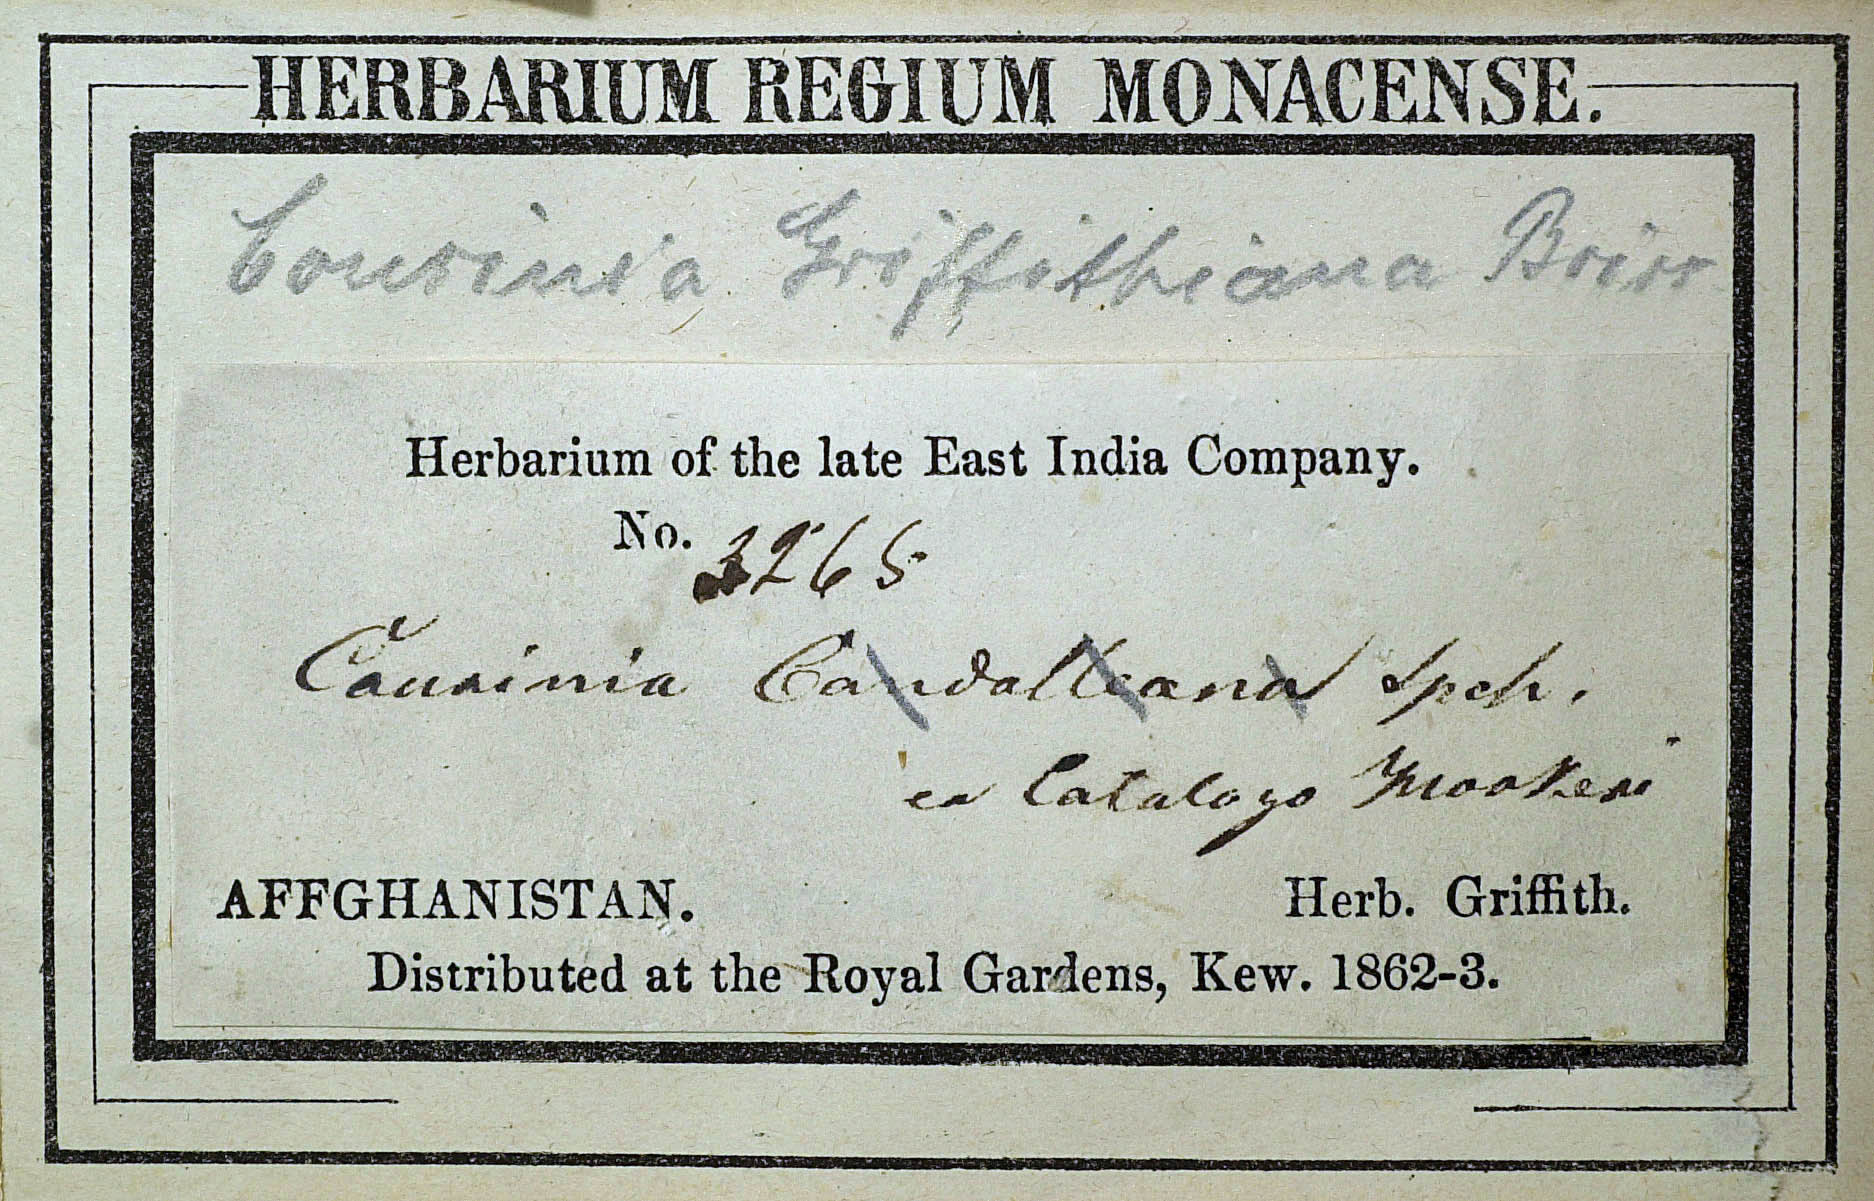 HERBARIUM REGIUM MONACENSE.
Cousinia Griffithiana Born
Herbarium of the late East India Company.
No. 3265
Cousinia Candolleana Spch.
ex Catalogo Hookeri
AFFGHANISTAN.
Herb. Griffith.
Distributed at the Royal Gardens, Kew. 1862-3.